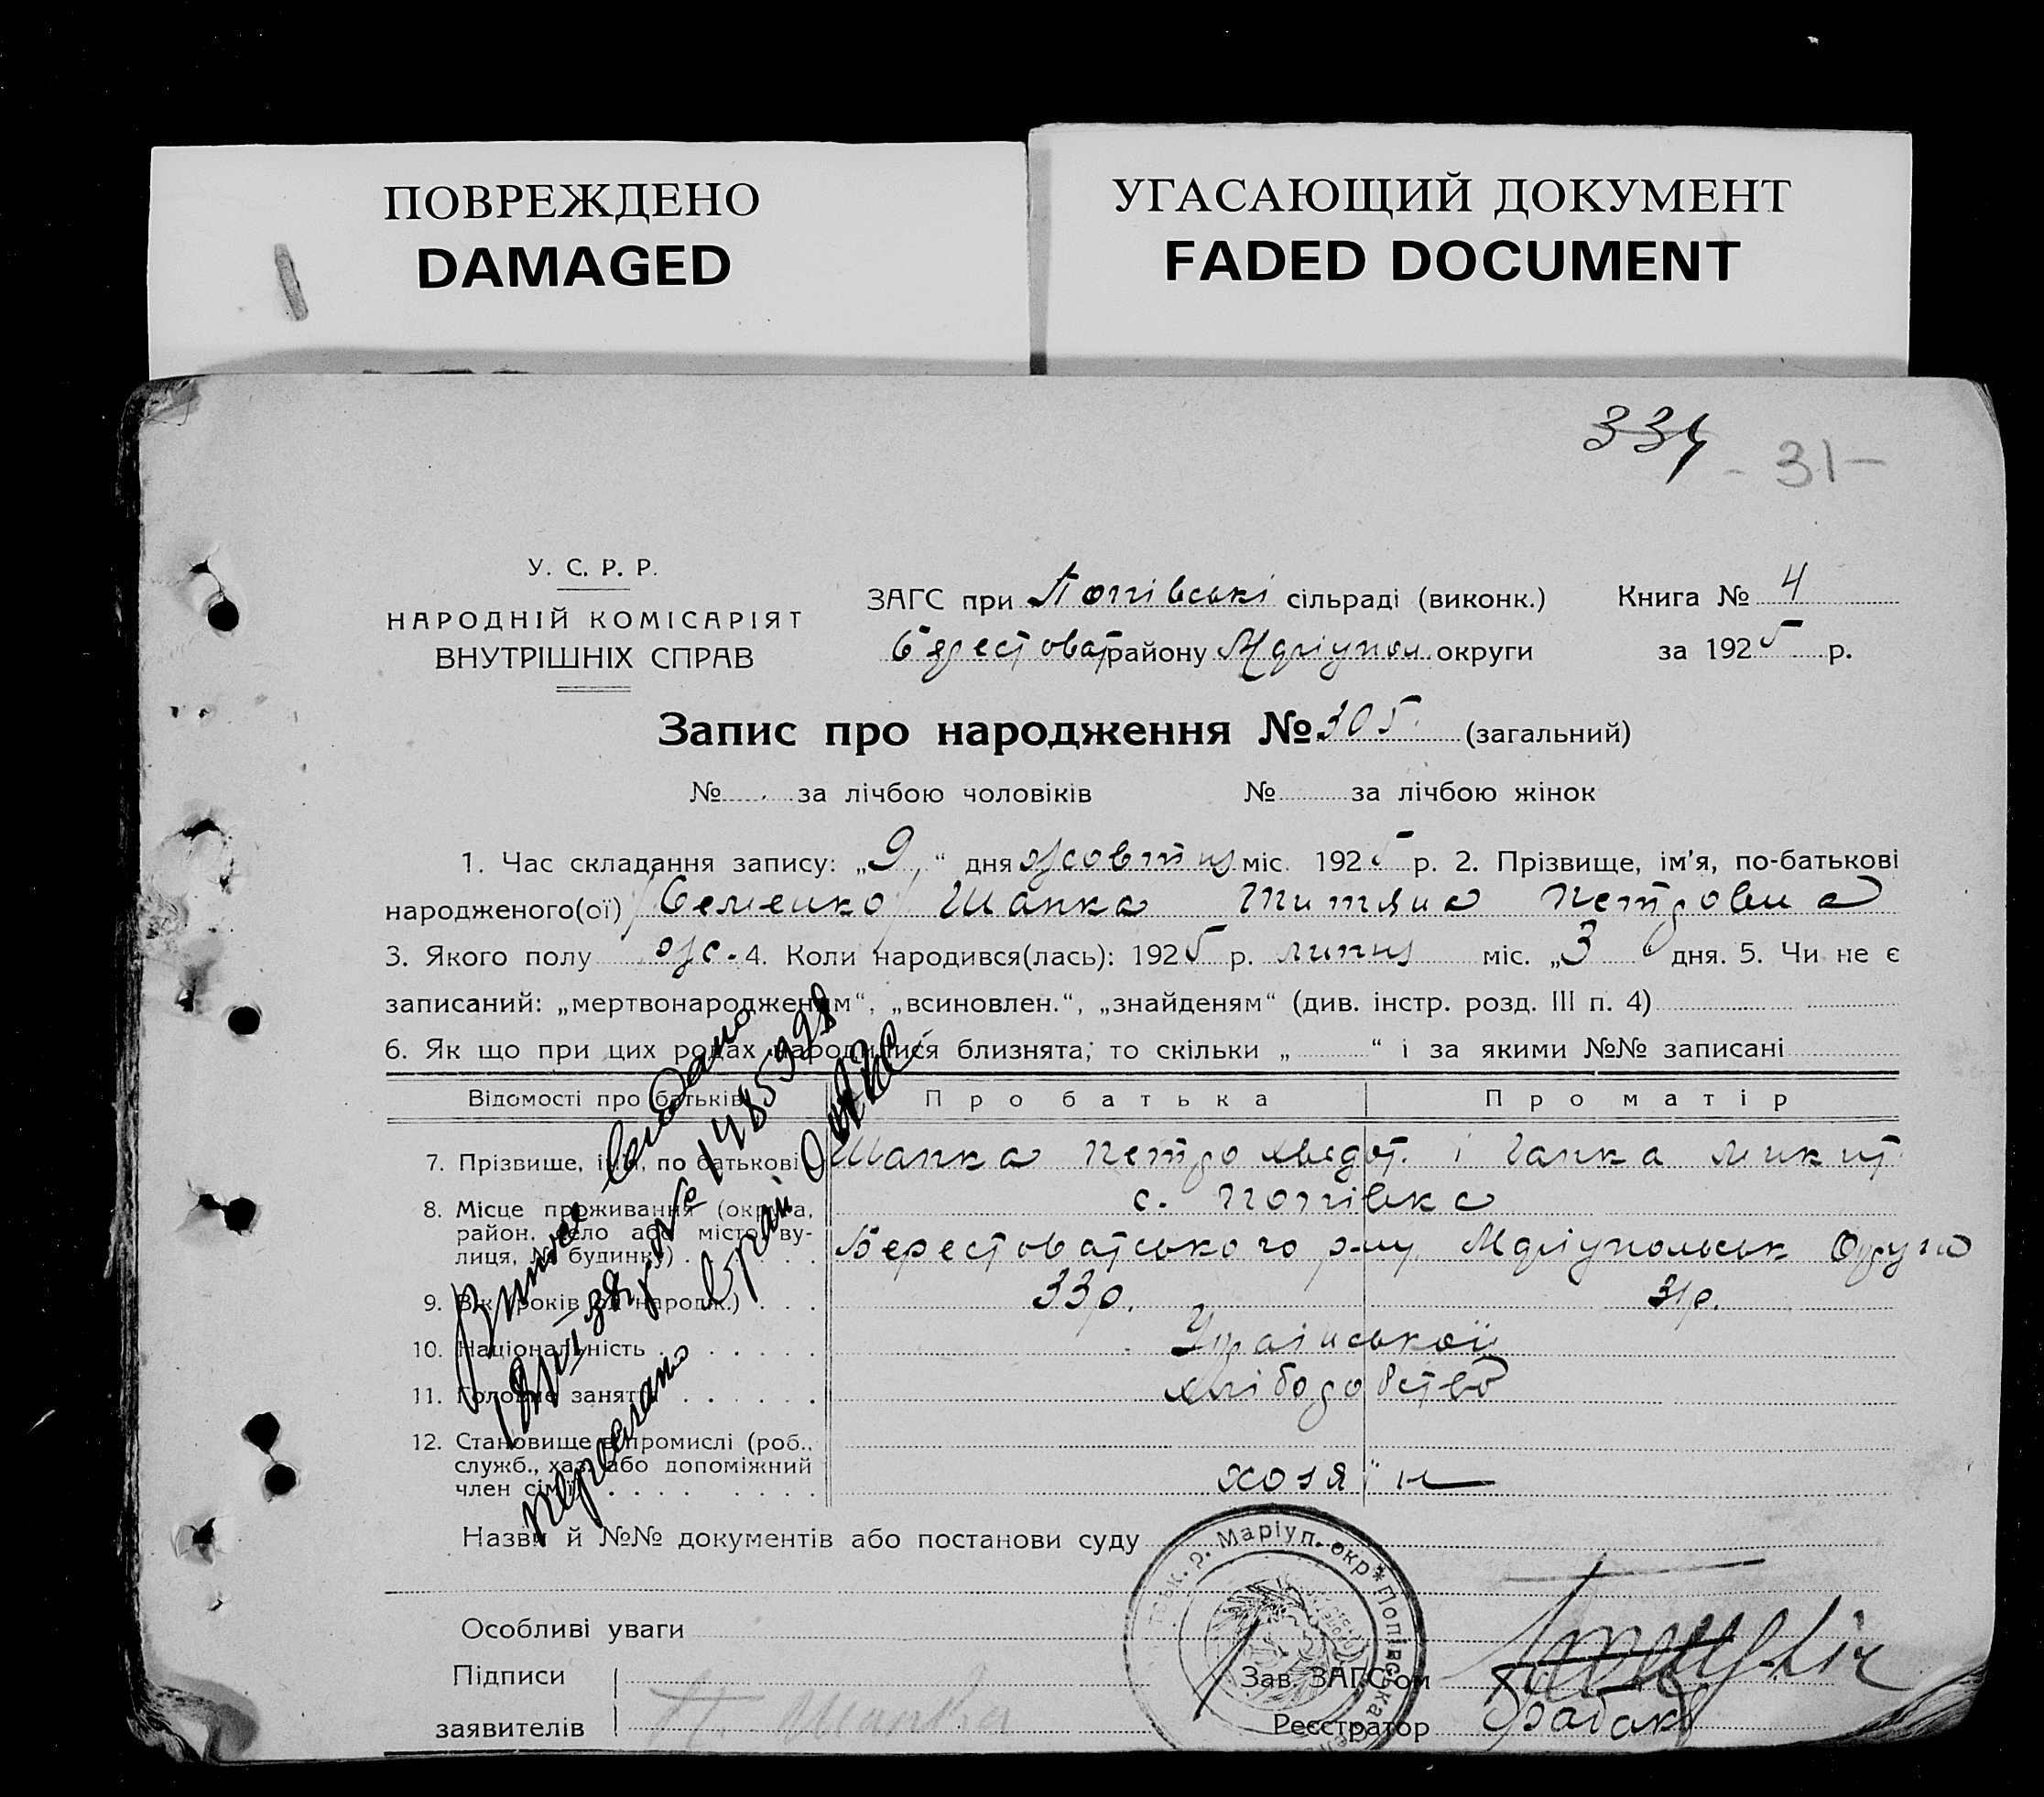 ПОВРЕЖДЕНО
DAMAGED
УГАСАЮЩИЙ ДОКУМЕНТ
FADED DOCUMENT
334
- 31 -
У. С. Р. Р.
НАРОДНІЙ КОМІСАРІЯТ
ВНУТРІШНІХ СПРАВ
ЗАГС при Попівські сільраді (виконк.) Книга № 4
Берестоват району Маріупол. округи за 1925 р.
Запис про народження № 305. (загальний)
№ за лічбою чоловіків № за лічбою жінок
1. Час складання запису: „9“ дня жовтня міс. 1925 р. 2. Прізвище, ім'я, по-батькові
народженого(ої) /Семенко/ Шапка Титяна Петровна
3. Якого полу ж. 4. Коли народився(лась): 1925 р. липня міс. „3“ дня. 5. Чи не є
записаний: „мертвонародженям“, „всиновлен.“, „знайденям“ (див. інстр. розд. III п. 4)
6. Як що при цих родах народилися близнята, то скільки „ “ і за якими №№ записані
Відомості про батьків Про батька Про матір
7. Прізвище, ім'я, по батькові Шапка Петро Хведот. і Гапка Микит.
8. Місце проживання (округа, район, село або місто, вулиця, № будинку) с. Попівка
Берестоватського р-ну Маріупольськ Округи
9. Вік (років від народж.) 33 р. 31 р.
10. Національність Украінськоі
11. Головне заняття хліборобство
12. Становище в промислі (роб., служб., хаз. або допоміжний член сім'ї) хозяїн
Назви й №№ документів або постанови суду
Особливі уваги
Підписи
заявителів П. Шапка
Зав. ЗАГС'ом
Реєстратор
ськ. р. Маріуп. окр * Попівська